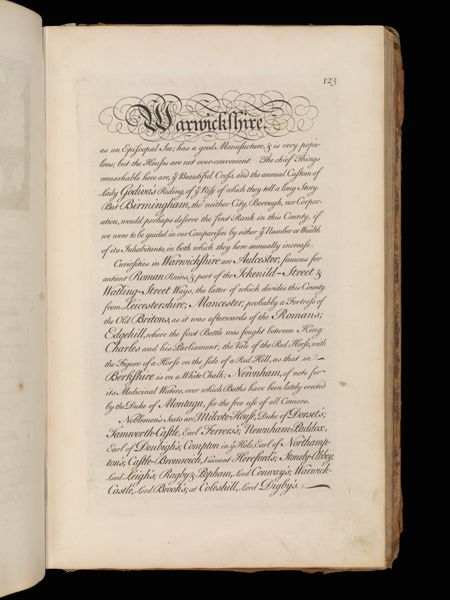 123
Warwickshire.
as an Episcopal See; has a good Manufacture, & is very popu-
lous; but the Houses are not over-convenient. The chief Things
remarkable here are, yͤ Beautiful Cross, and the annual Custom of
Lady Godiva's Riding, of yͤ Rise of which they tell a long Story.
But Birmingham, tho' neither City, Borough, nor Corpor-
ation, would perhaps deserve the first Rank in this County, if
we were to be guided in our Comparison by either yͤ Number or Wealth
of its Inhabitants, in both which they here annually increase.
Curiosities in Warwickshire are Aulcester, famous for
antient Roman Ruins, & part of the Ickenild-Street &
Watling-Street Ways, the latter of which divides this County
from Leicestershire; Mancester, probably a Fortress of
the Old Britons, as it was afterwards of the Romans;
Edgehill, where the first Battle was fought between King
Charles and his Parliament; the Vale of the Red Horse, with
the Figure of a Horse on the side of a Red Hill, as that in
Berkshire is on a White Chalk; Newnham, of note for
its Medicinal Waters, over which Baths have been lately erected
by the Duke of Montagu, for the free use of all Comers.
Noblemen's Seats are, Milcote-House, Duke of Dorset's;
Tamworth-Castle, Earl Ferrers's; Newnham-Paddox,
Earl of Denbigh's; Compton in yͤ Hole, Earl of Northamp-
ton's; Castle-Bromwich, Viscount Hereford's; Stonely-Abbey,
Lord Leigh's; Ragby & Popham, Lord Conway's; Warwick-
Castle, Lord Brook's; at Coleshill, Lord Digby's.